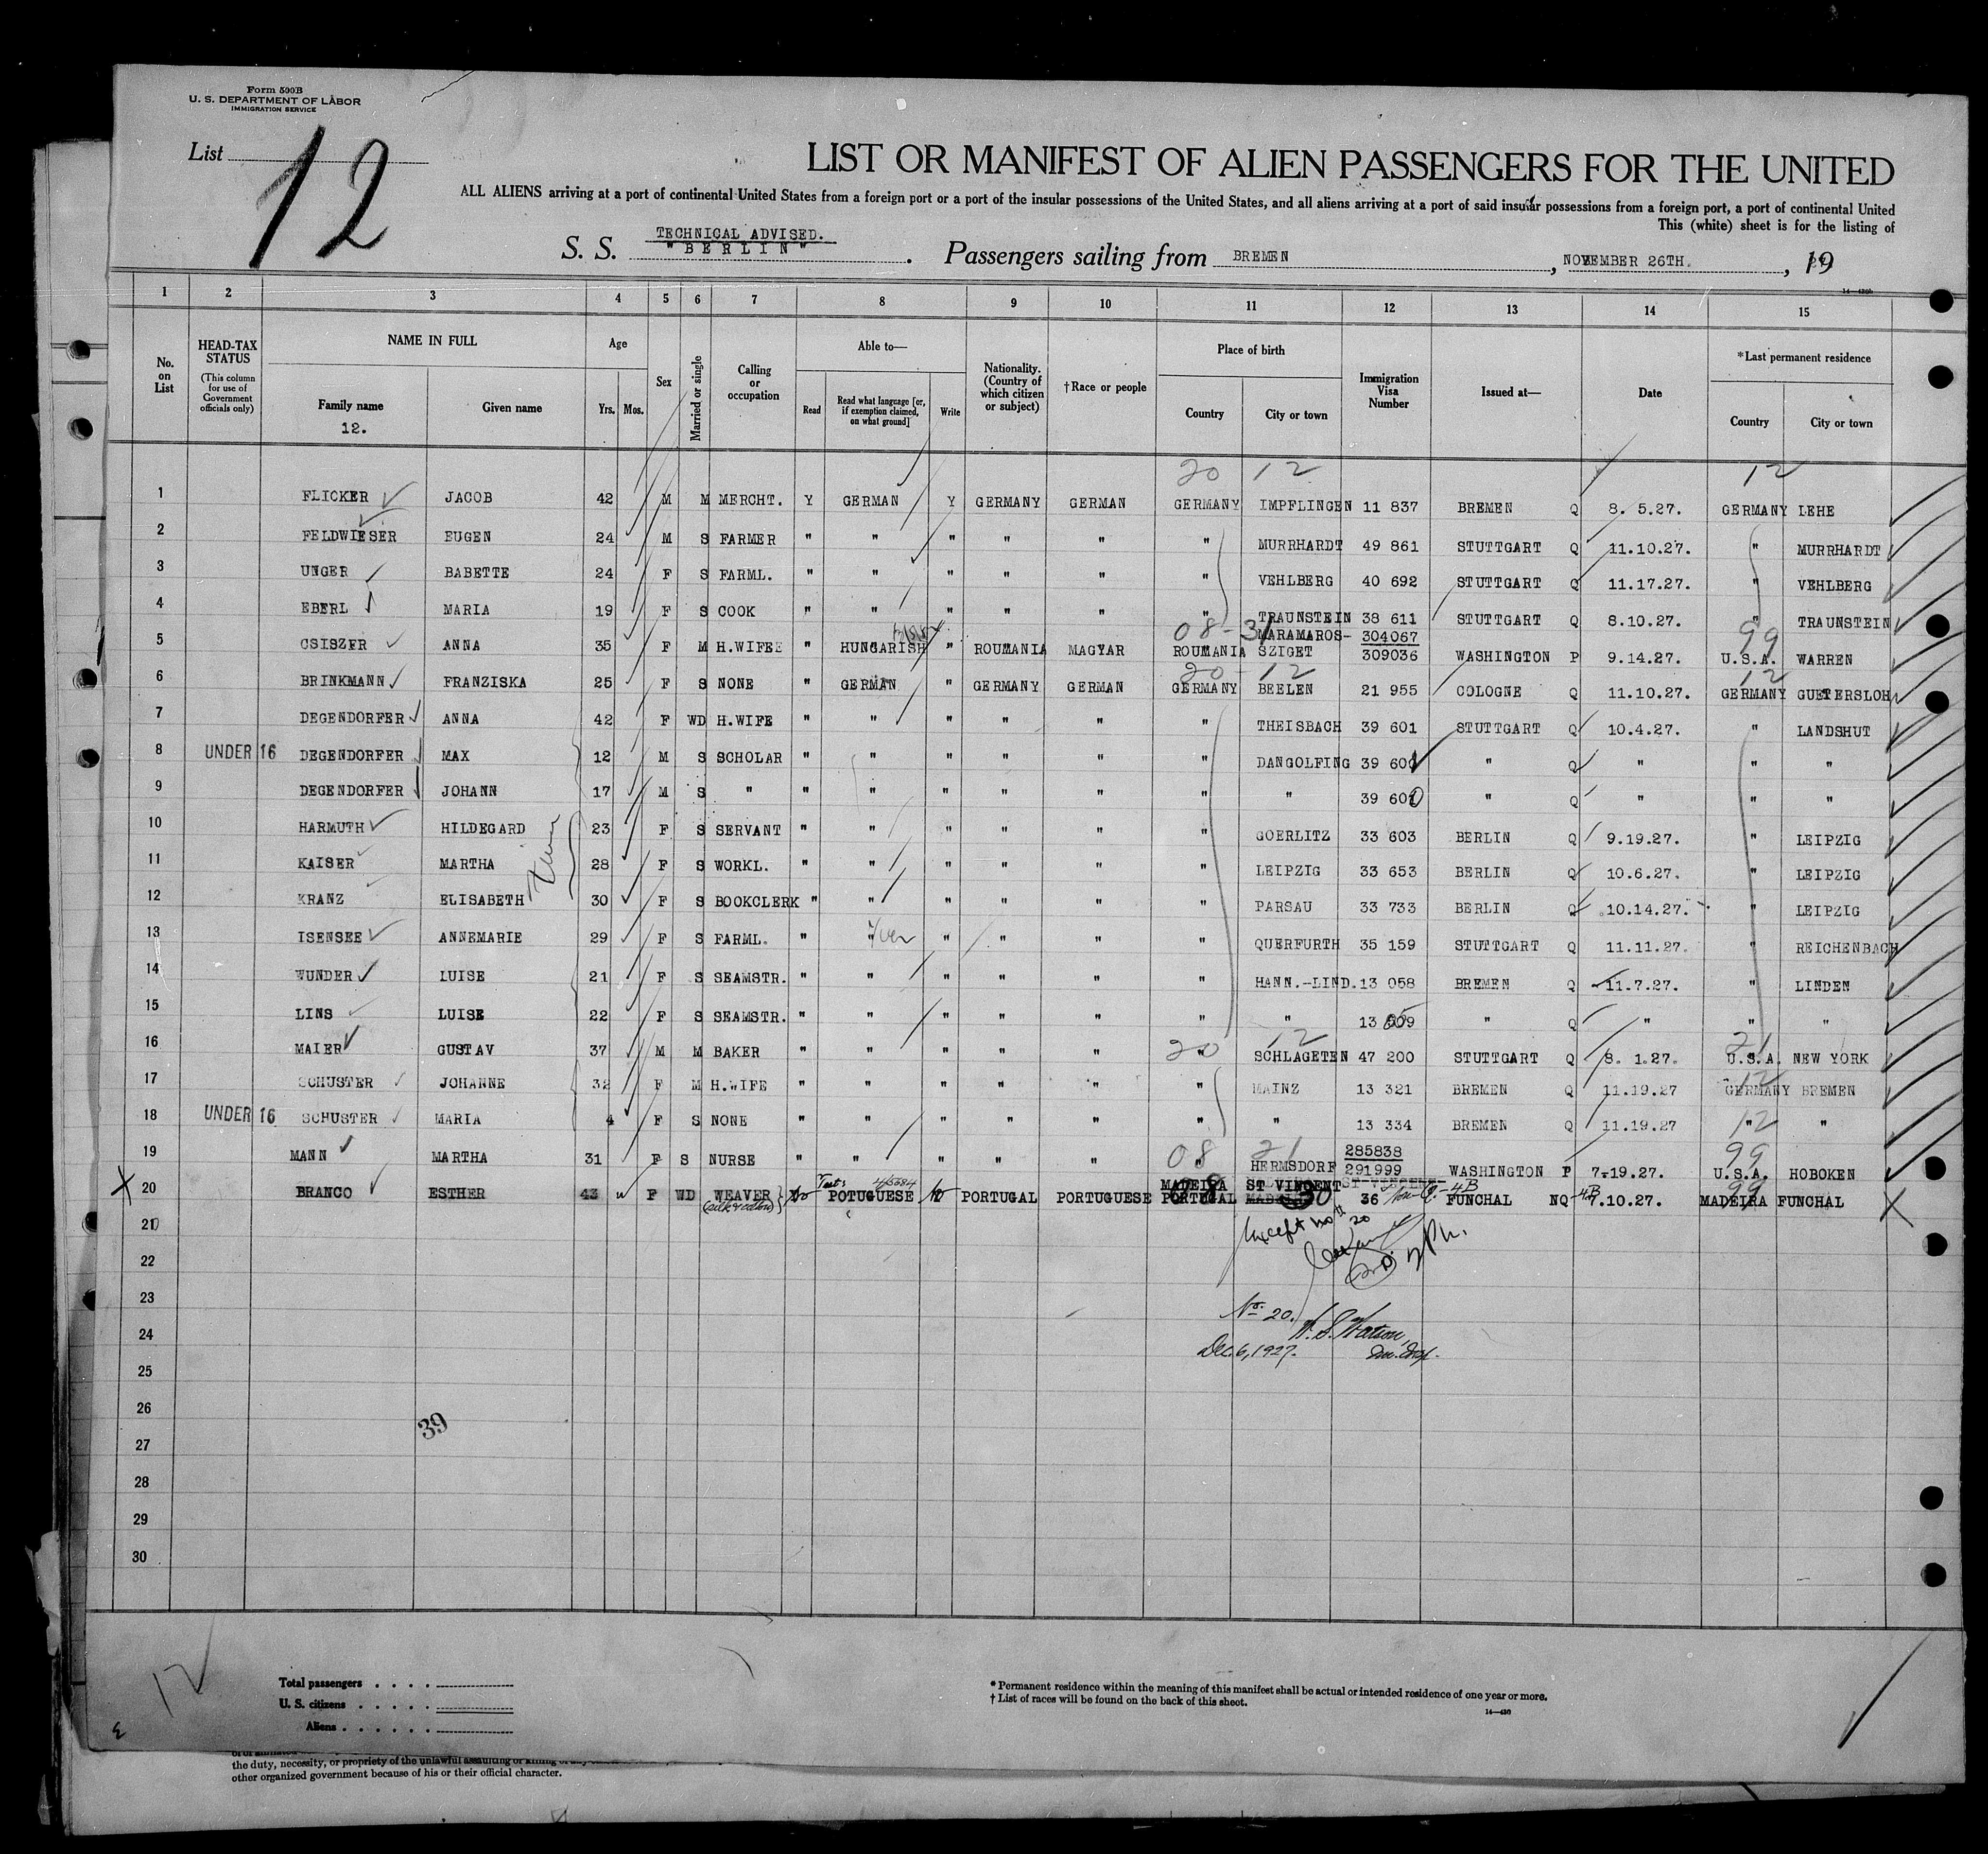 Form 500B
U. S. DEPARTMENT OF LABOR
IMMIGRATION SERVICE
List 12
LIST OR MANIFEST OF ALIEN PASSENGERS FOR THE UNITED
ALL ALIENS arriving at a port of continental United States from a foreign port or a port of the insular possessions of the United States, and all aliens arriving at a port of said insular possessions from a foreign port, a port of continental United
This (white) sheet is for the listing of
TECHNICAL ADVISED.
S. S. "BERLIN" . Passengers sailing from BREMEN , NOVEMBER 26TH. , 19
14—430b
1 2 3 4 5 6 7 8 9 10 11 12 13 14 15
No. on List
HEAD-TAX STATUS (This column for use of Government officials only)
NAME IN FULL Family name Given name
12.
Age Yrs. Mos.
Sex
Married or single
Calling or occupation
Able to— Read Read what language [or, if exemption claimed, on what ground] Write
Nationality. (Country of which citizen or subject)
†Race or people
Place of birth Country City or town
Immigration Visa Number
Issued at—
Date
*Last permanent residence Country City or town
20 12 12
1 FLICKER JACOB 42 M M MERCHT. Y GERMAN Y GERMANY GERMAN GERMANY IMPFLINGEN 11 837 BREMEN Q 8. 5.27. GERMANY LEHE
2 FELDWIESER EUGEN 24 M S FARMER " " " " " " MURRHARDT 49 861 STUTTGART Q 11.10.27. " MURRHARDT
3 UNGER BABETTE 24 F S FARML. " " " " " " VEHLBERG 40 692 STUTTGART Q 11.17.27. " VEHLBERG
4 EBERL MARIA 19 F S COOK " " " " " " TRAUNSTEIN 38 611 STUTTGART Q 8.10.27. " TRAUNSTEIN
08-31 MARAMAROS- 304067 99
5 CSISZER ANNA 35 F M H.WIFE " HUNGARISH " ROUMANIA MAGYAR ROUMANIA SZIGET 309036 WASHINGTON P 9.14.27. U.S.A. WARREN
20-12 12
6 BRINKMANN FRANZISKA 25 F S NONE " GERMAN " GERMANY GERMAN GERMANY BEELEN 21 955 COLOGNE Q 11.10.27. GERMANY GUETERSLOH
7 DEGENDORFER ANNA 42 F WD H.WIFE " " " " " " THEISBACH 39 601 STUTTGART Q 10.4.27. " LANDSHUT
8 UNDER 16 DEGENDORFER MAX 12 M S SCHOLAR " " " " " " DANGOLFING 39 60 " Q " " "
9 DEGENDORFER JOHANN 17 M S " " " " " " " " 39 600 " Q " " "
10 HARMUTH HILDEGARD 23 F S SERVANT " " " " " " GOERLITZ 33 603 BERLIN Q 9.19.27. " LEIPZIG
11 KAISER MARTHA 28 F S WORKL. " " " " " " LEIPZIG 33 653 BERLIN Q 10.6.27. " LEIPZIG
12 KRANZ ELISABETH 30 F S BOOKCLERK " " " " " " PARSAU 33 733 BERLIN Q 10.14.27. " LEIPZIG
13 ISENSEE ANNEMARIE 29 F S FARML. " " " " " " QUERFURTH 35 159 STUTTGART Q 11.11.27. " REICHENBACH
14 WUNDER LUISE 21 F S SEAMSTR. " " " " " " HANN.-LIND. 13 058 BREMEN Q 11.7.27. " LINDEN
15 LINS LUISE 22 F S SEAMSTR. " " " " " " " 13 059 " Q " " "
20 12 21
16 MAIER GUSTAV 37 M M BAKER " " " " " " SCHLAGETEN 47 200 STUTTGART Q 8. 1.27. U.S.A. NEW YORK
12
17 SCHUSTER JOHANNE 32 F M H.WIFE " " " " " " MAINZ 13 321 BREMEN Q 11.19.27 GERMANY BREMEN
12
18 UNDER 16 SCHUSTER MARIA 4 F S NONE " " " " " " " 13 334 BREMEN Q 11.19.27 " "
08 21 285838 99
19 MANN MARTHA 31 F S NURSE " " " " " " HERMSDORF 291999 WASHINGTON P 7.19.27. U.S.A. HOBOKEN
MADEIRA ST VINCENT ST VINCENT
X 20 BRANCO ESTHER 43 F WD WEAVER POTUGUESE PORTUGAL PORTUGUESE PORTUGAL 30 36 FUNCHAL NQ-4B 7.10.27. MADEIRA FUNCHAL X
(silk & cotton)
21
Except No 20
22
23
No. 20.
24
W. S. Watson
Dec. 6, 1927. Imm. Insp.
25
26
39
27
28
29
30
12
Total passengers
U. S. citizens
Aliens
* Permanent residence within the meaning of this manifest shall be actual or intended residence of one year or more.
† List of races will be found on the back of this sheet.
14—430
the duty, necessity, or propriety of the unlawful assaulting or killing of
other organized government because of his or their official character.